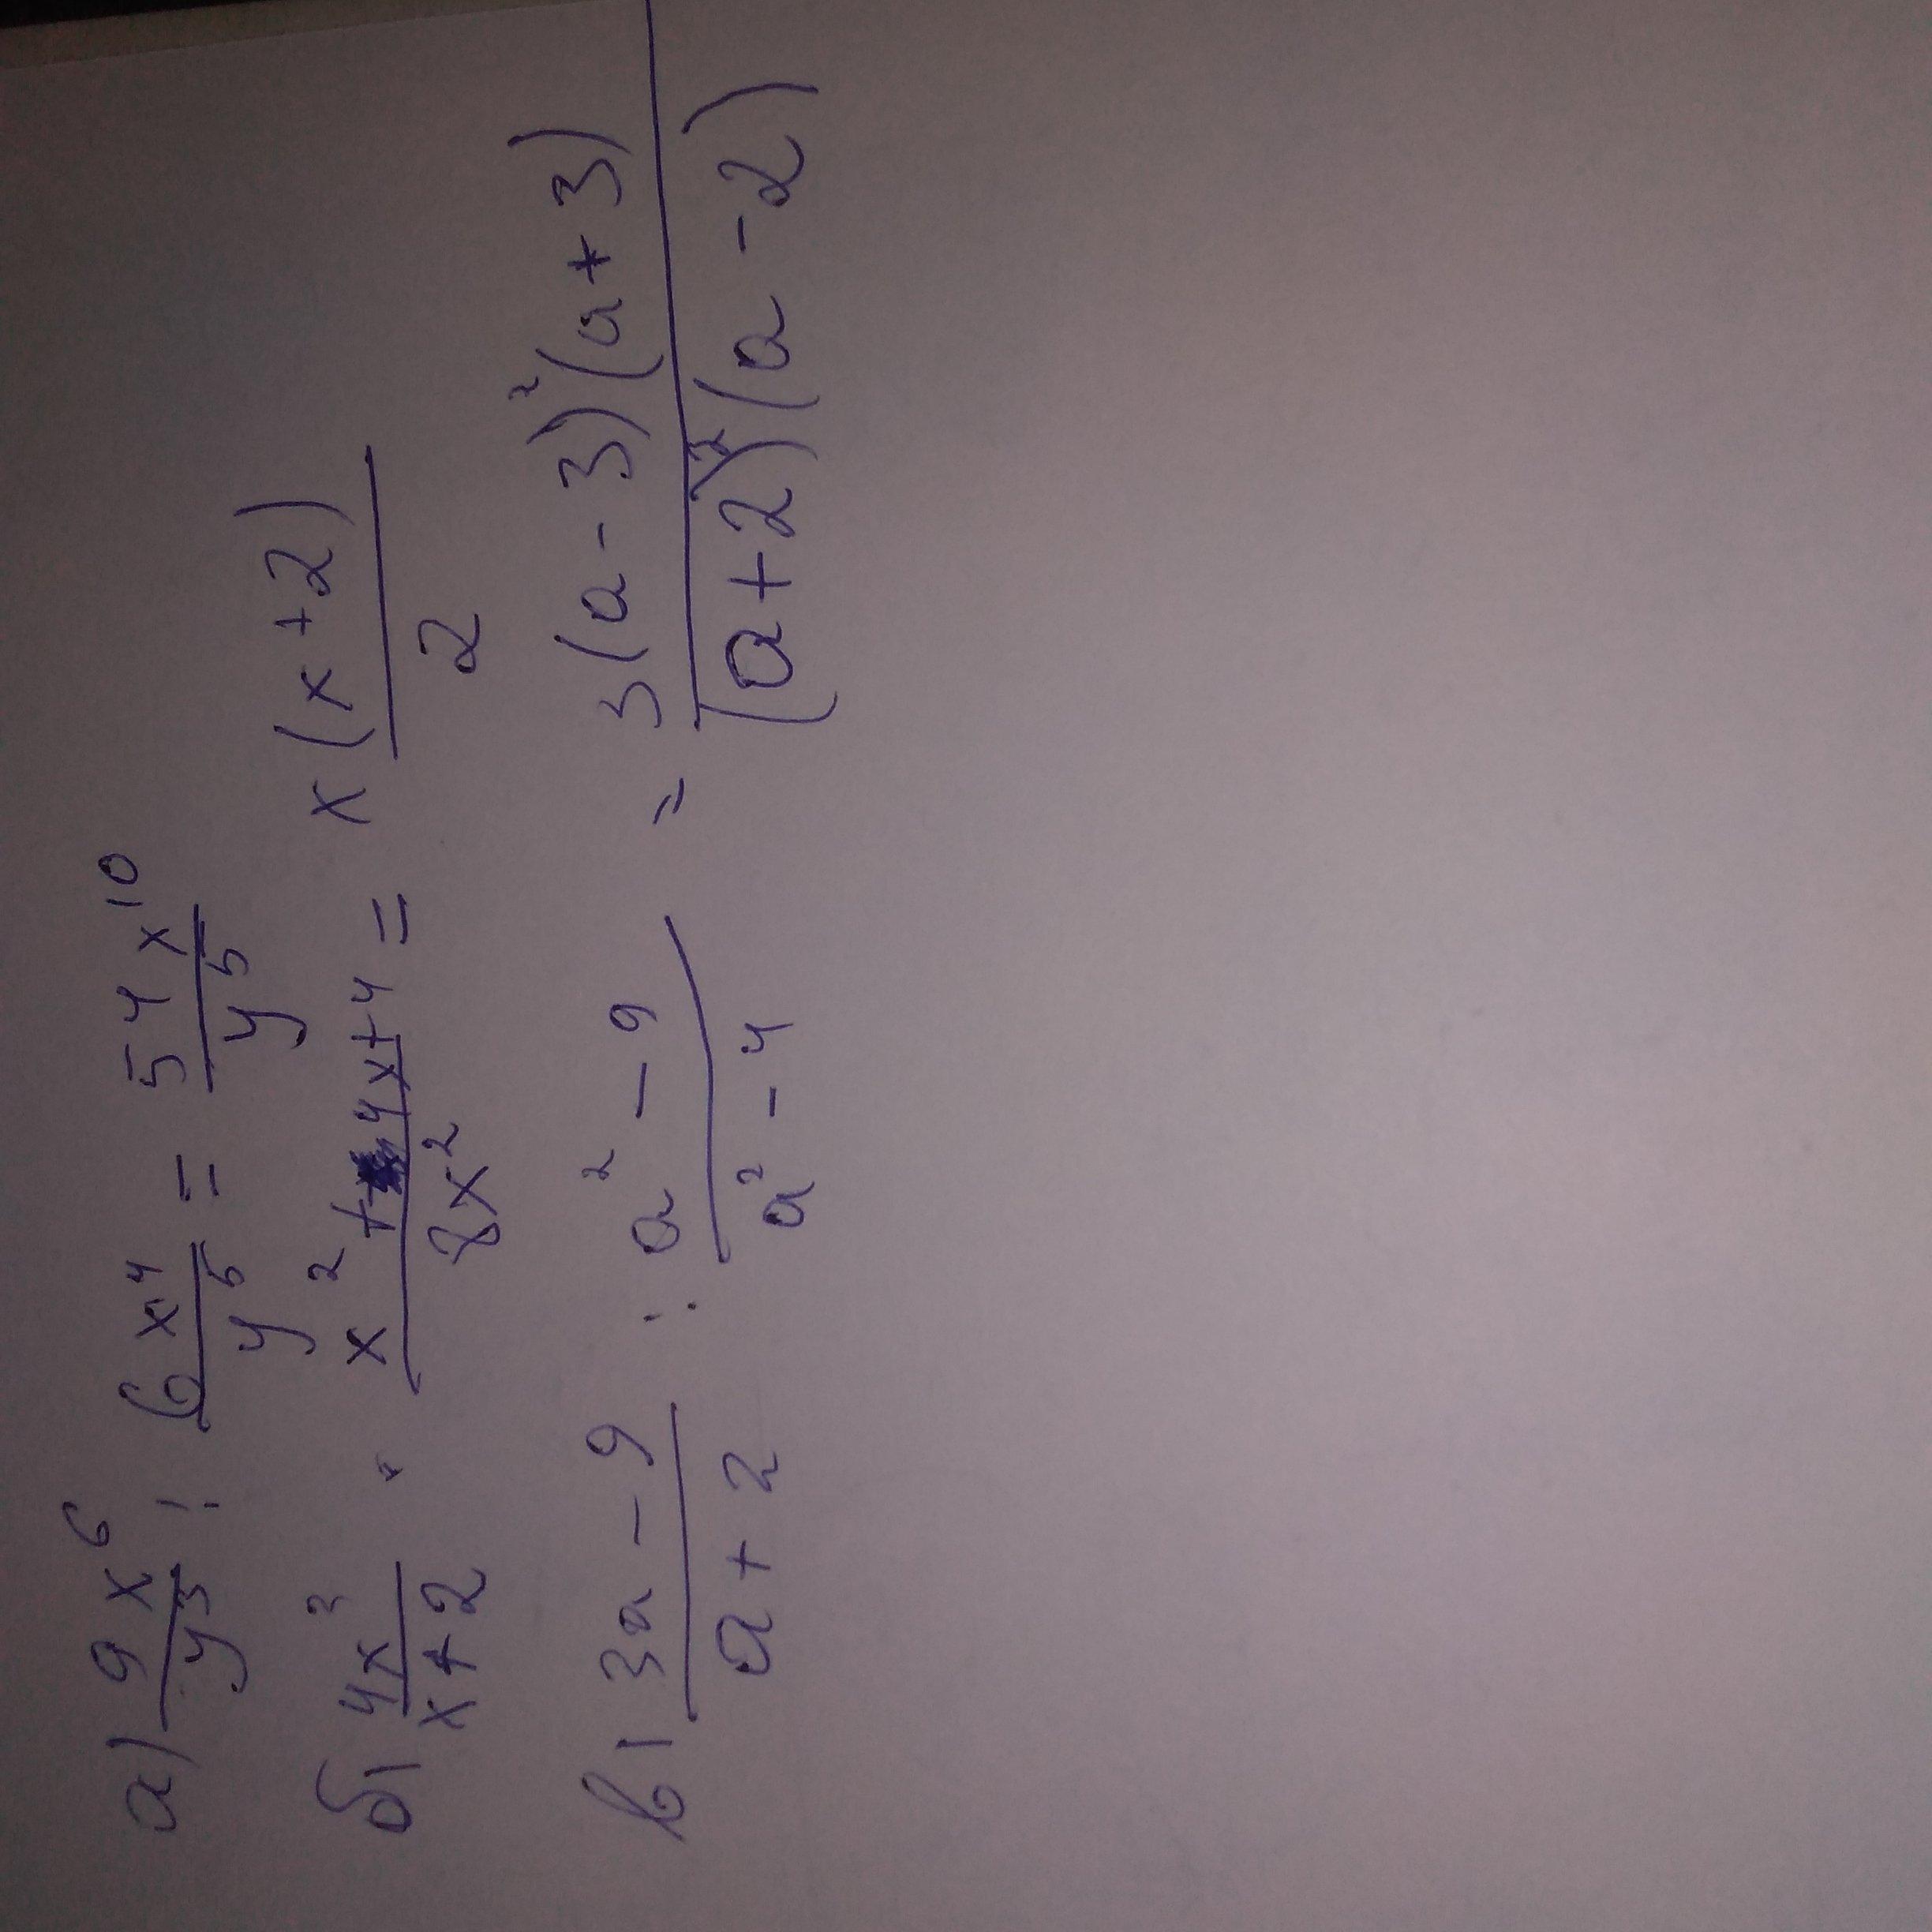 а) 9x⁶/y³ : 6x⁴/y⁵ = 54x¹⁰/y⁵
б) 4x²/x+2 · x²+4x+4/8x² = x(x+2)/2
в) 3a-9/a+2 : a²-9/a²-4 = 3(a-3)²(a+3)/(a+2)²(a-2)